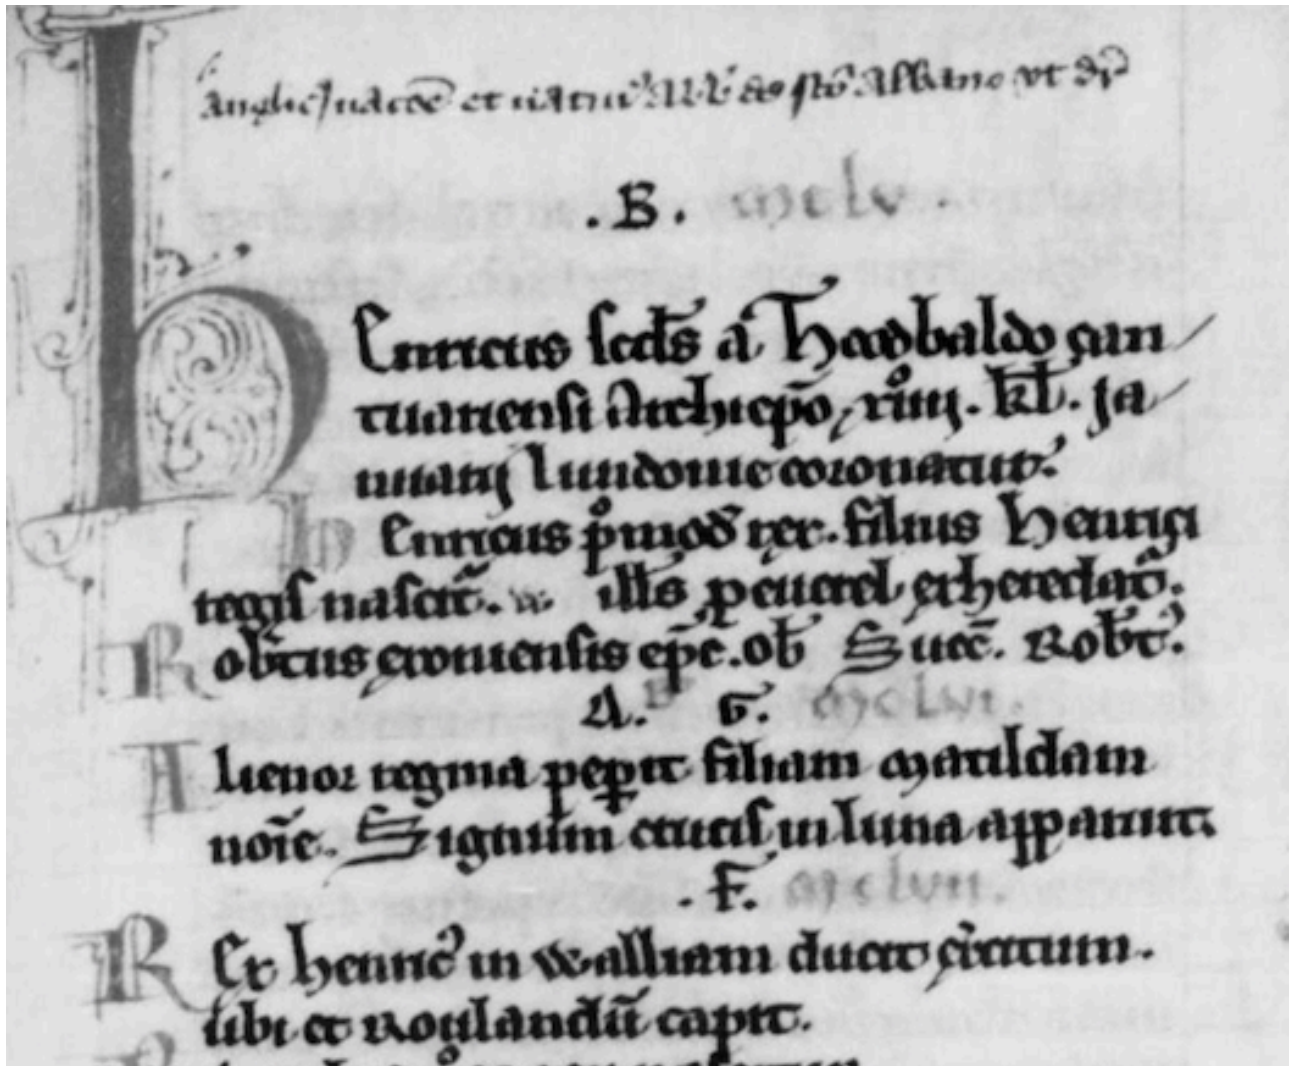 et
.B. mclv.
Henricus scds a Theodbaldo can
tuariensi Archiepo, xiiij. kl. Ja
nuarij Lundonie coronatur.
Henricus pmogs rex. filius Henrici
regis nascit. Will's peuerel exheredat.
Robtus exoniensis epc. ob Succ. Robt.
A. G. mclvi.
Alienor regina pepit filiam matildam
noie. Signum crucis in luna apparuit.
.F. mclvii.
Rex henric in walliam ducit exercitum.
ubi et capit.